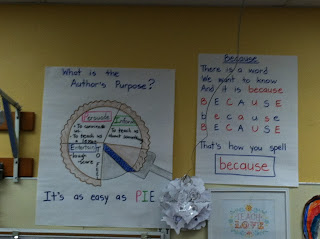 What is the
Author's Purpose?
Persuade
- To convince
us
- To teach us
a lesson
Inform
- To teach us
about something
Entertain
It's as easy as PIE
Because
There is a word
We want to know
And it is because
B E C A U S E
b e c a u s e
B E C A U S E
That's how you spell
because
TEACH
LOVE